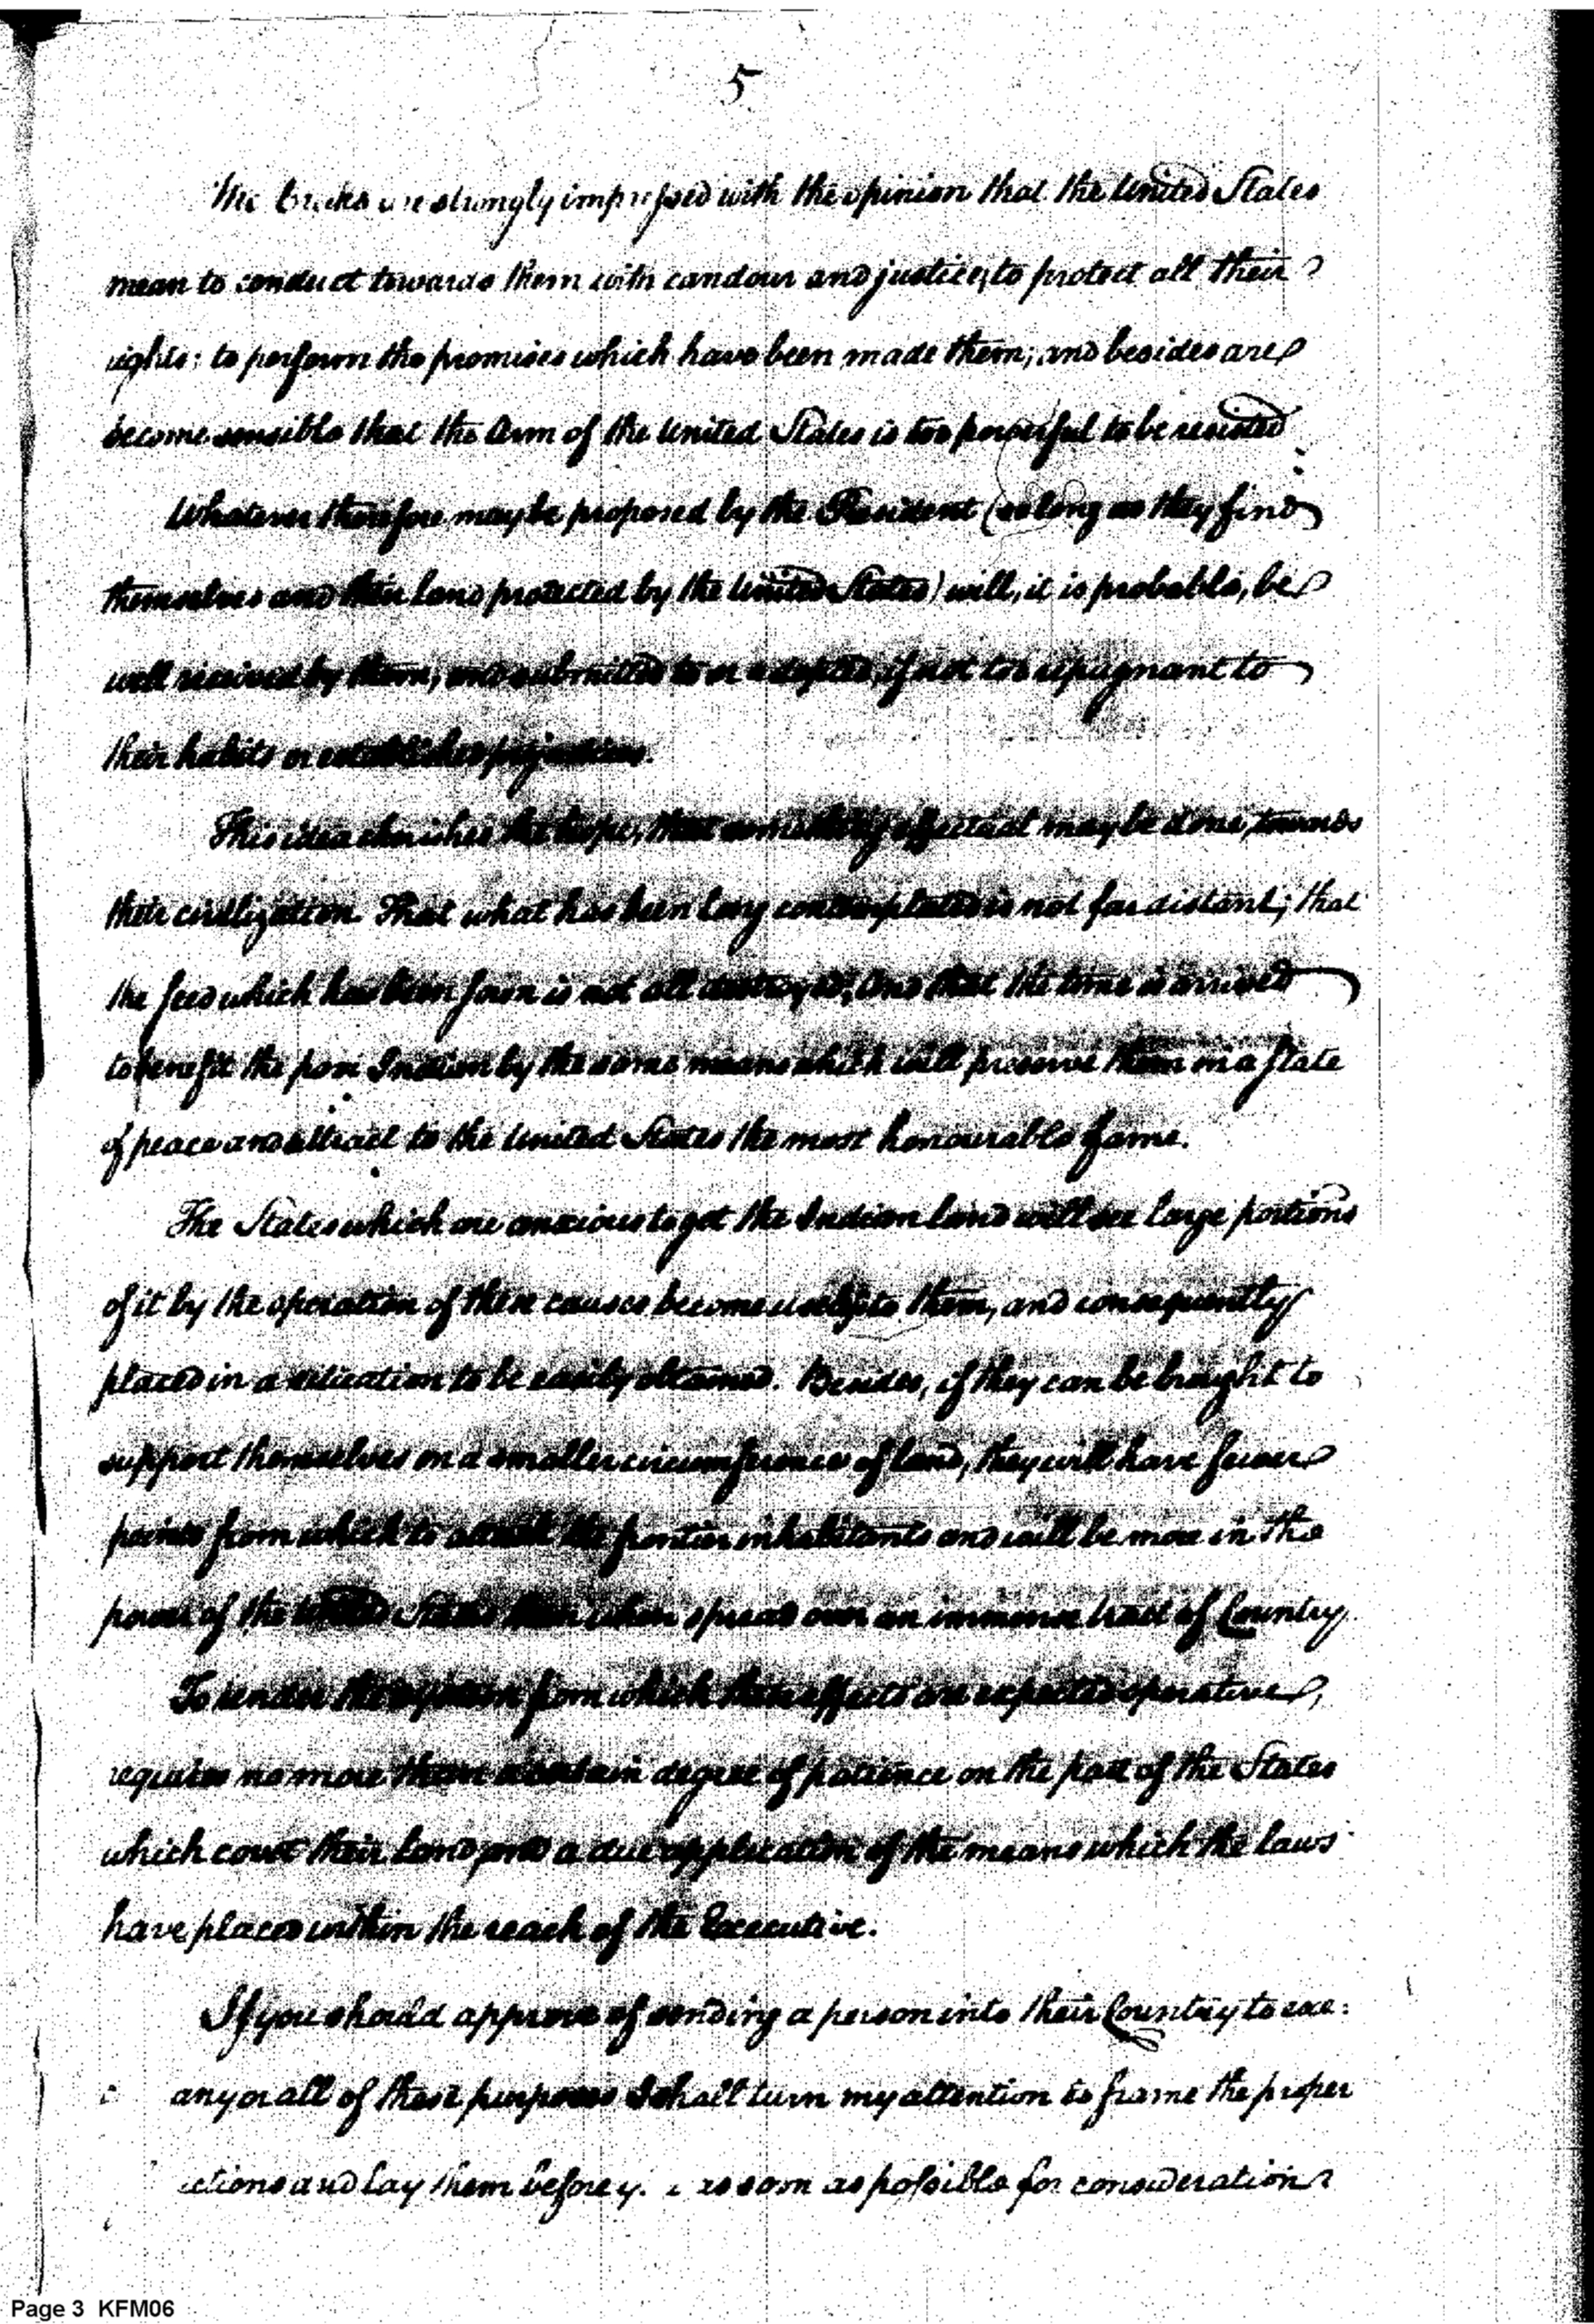 5
The Creeks are strongly impressed with the opinion that the United States
mean to conduct towards them with candour and justice, to protect all their
rights; to perform the promises which have been made them; and besides are
become sensible that the Arm of the United States is too powerful to be resisted
Whatever therefore may be proposed by the President (so long as they find
themselves and their land protected by the United States) will, it is probable, be
well received by them, and submitted to or adopted, if not too repugnant to
their habits or established prejudices.
This idea cherishes the hope, that something effectual may be done, towards
their civilization. That what has been long contemplated is not far distant; that
the seed which has been sown is not all destroyed; and that the time is arrived
to benefit the poor Indian by the same means which will preserve them in a state
of peace and attract to the United States the most honourable fame.
The States which are anxious to get the Indian land will see large portions
of it by the operation of these causes become useless to them, and consequently
placed in a situation to be easily obtained. Besides, if they can be brought to
support themselves on a smaller circumference of land, they will have fewer
points from which to attack the frontier inhabitants and will be more in the
power of the United States than when spread over an immense tract of Country.
To render the system from which these effects are expected operative,
requires no more than a certain degree of patience on the part of the States
which covet their land, and a due application of the means which the laws
have placed within the reach of the Executive.
If you should approve of sending a person into their Country to exe:
any or all of these purposes I shall turn my attention to frame the proper
ctions and lay them before y. as soon as possible for consideration
Page 3 KFM06